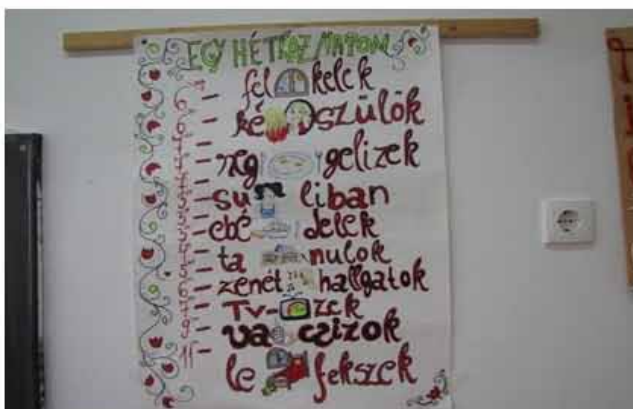 EGY HÉTKÖZNAPOM
fel kelek
ké szülök
reg gelizek
su liban
ebé delek
ta nulok
zenét hallgatok
TV- zek
va csizok
le fekszek